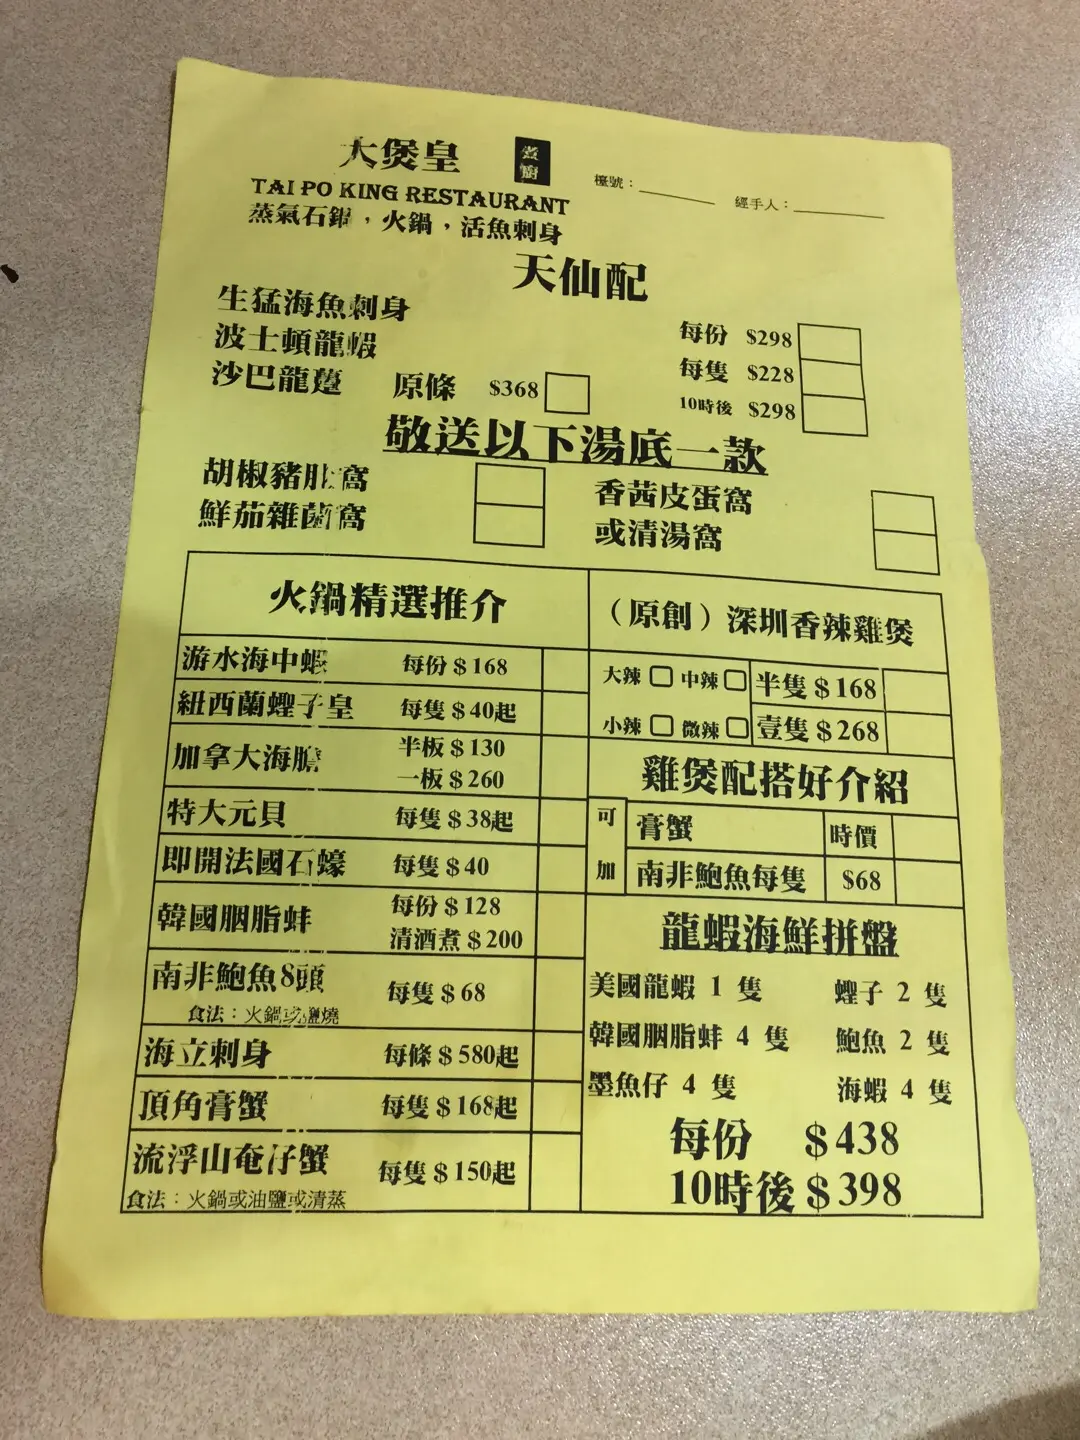 大煲皇 煮廚
檯號：
經手人：
TAI PO KING RESTAURANT
蒸氣石鍋，火鍋，活魚刺身
天仙配
生猛海魚刺身 每份 $298
波士頓龍蝦 每隻 $228
沙巴龍躉 原條 $368 10時後 $298
敬送以下湯底一款
胡椒豬肚窩 香茜皮蛋窩
鮮茄雜菌窩 或清湯窩
火鍋精選推介
游水海中蝦 每份 $168
紐西蘭蟶子皇 每隻 $40起
加拿大海膽 半板 $130
一板 $260
特大元貝 每隻 $38起
即開法國石蠔 每隻 $40
韓國胭脂蚌 每份 $128
清酒煮 $200
南非鮑魚8頭 每隻 $68
食法：火鍋或鹽燒
海立刺身 每條 $580起
頂角膏蟹 每隻 $168起
流浮山奄仔蟹 每隻 $150起
食法：火鍋或油鹽或清蒸
（原創）深圳香辣雞煲
大辣 中辣 半隻 $168
小辣 微辣 壹隻 $268
雞煲配搭好介紹
可加
膏蟹 時價
南非鮑魚每隻 $68
龍蝦海鮮拼盤
美國龍蝦 1 隻 蟶子 2 隻
韓國胭脂蚌 4 隻 鮑魚 2 隻
墨魚仔 4 隻 海蝦 4 隻
每份 $438
10時後 $398